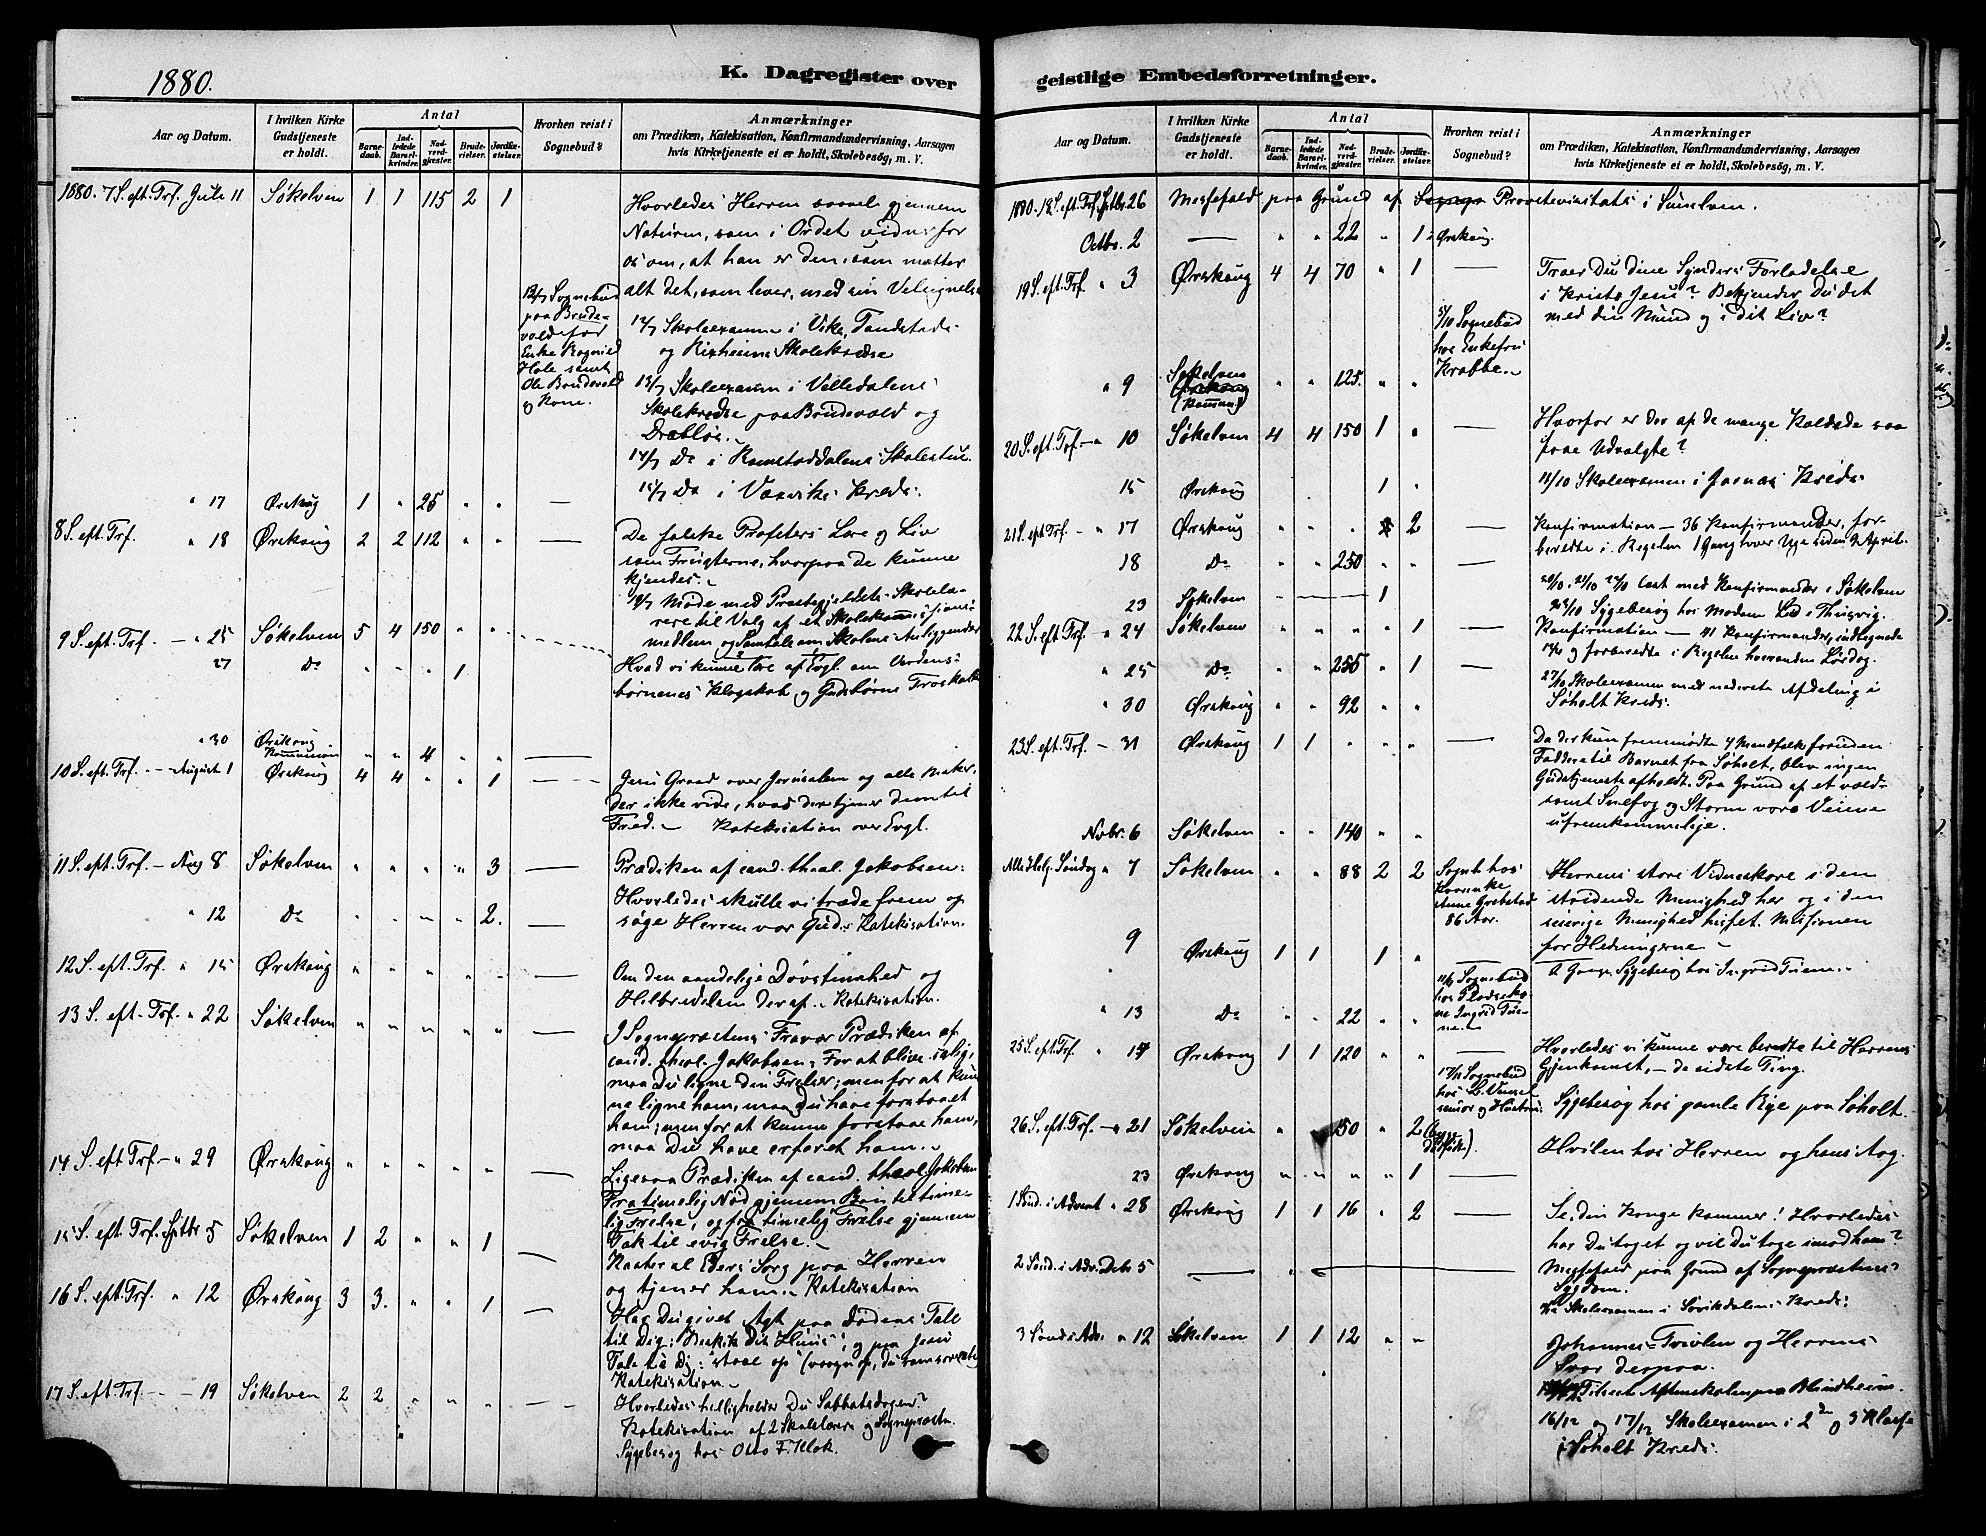 1880.
K. Dagregister over
Aar og Datum.
I hvilken Kirke Gudstjeneste er holdt.
Antal
Barnedaab.
Indledede Barselkvinder.
Nadverdgjæster.
Brudevielser.
Jordfæstelser.
Hvorhen reist i Sognebud?
Anmærkninger
om Prædiken, Katekisation, Konfirmandundervisning, Aarsagen
hvis Kirketjeneste ei er holdt, Skolebesøg, m. V.
1880. 7 S. eft. Trf. Juli 11 Søkelven 1 1 115 2 1
Hvorledes Herren saavel gjennem
Naturen, som i Ordet vidner for
os om, at han er den, som mætter
alt det, som lever, med sin Velsignelse
12/7 Sognebud
paa Brude-
vold for
Enke Ragnild
Hole samt
Ole Brudevold
og Kone.
12/7 Skoleexamen i Vike, Tandstads
og Riksheims Skolekredse
13/7 Skoleexamen i Velledalens
Skolekredse paa Brudevold og
Drabløs.
14/7 Do i Ramstaddalens Skolestue.
15/7 Do i Vaxviks Kreds.
" 17 Ørskoug 1 " 25 " "
8 S. eft. Trf. " 18 Ørskoug 2 2 112 " "
De falske Profeters Lære og Liv
som Frugterne, hvorpaa de kunne
kjendes.
19/7 Møde med Præstegjeldets Skolelæ-
rere til Valg af et Skolekommissions-
medlem og Samtale om Skolens Anliggender
9 S. eft. Trf. " 25 Søkelven 5 4 150 " "
27 Do " " " 1
Hvad vi kunne lære af Evgl. om Verdens-
børnenes Klogskab og Gudsbørns Troskab
" 30 Ørskoug Kommunion " " 4 " "
10 S. eft. Trf. August 1 Ørskoug 4 4 " " 1
Jesu Graad over Jerusalem og alle Mennesker,
der ikke vide, hvad der tjener dem til
Fred. Katekisation over Evgl.
11 S. eft. Trf. Aug 8 Søkelven " " " " 3
Prædiken af cand. theol. Jakobsen:
Hvorledes skulle vi træde frem og
søge Herren vor Gud. Katekisation.
" 12 Do " " " " 2.
12 S. eft. Trf. " 15 Ørskoug " " " " "
Om den aandelige Døvstumhed og
Helbredelsen deraf. Katekisation.
13 S. eft. Trf. " 22 Søkelven " " " " "
I Sognepræstens Fravær Prædiken af
cand. theol. Jakobsen: For at blive salig,
maa Du ligne din Frelser; men for at kun-
ne ligne ham, maa Du have forstaaet
ham; men for at kunne forstaae ham,
maa Du have erfaret ham.
14 S. eft Trf. " 29 Ørskoug " " " " "
Ligesaa Prædiken af cand. theol. Jakobsen
Fra timelig Nød gjennem Bøn til time-
lig Frelse, og fra timelig Frelse gjennem
Tak til evig Frelse.
15 S. eft Trf. Septbr 5 Søkelven 1 2 " " 1
Kaster al Eders Sorg paa Herren
og tjener ham. Katekisation
16 S. eft. Trf. " 12 Ørskoug 3 3. " " 1
Har Du givet Agt paa Dødens Tale
til Dig: "Beskik dit Huus", og paa Jesu
Tale til Dig: "staae op" (vaagn op, du som sover etc)
Katekisation.
17 S. eft. Trf. 19 Søkelven 2 2 " " "
Hvorledes helligholder Du Sabbatsdagen?
Katekisation af 2 Skolelærere og Sognepræsten.
Sygebesøg hos Otto F. Klok.
geistlige Embedsforretninger.
Aar og Datum.
I hvilken Kirke Gudstjeneste er holdt.
Antal
Barnedaab.
Indledede Barselkvinder.
Nadverdgjæster.
Brudevielser.
Jordfæstelser.
Hvorhen reist i Sognebud?
Anmærkninger
om Prædiken, Katekisation, Konfirmandundervisning, Aarsagen
hvis Kirketjeneste ei er holdt, Skolebesøg, m. V.
1880. 18 S. eft. Trf. Septbr. 26 Messefald paa Grund af Provstevisitats i Sunelven.
Octbr. 2 — " " 22 " 1 i Ørskoug.
19 S. eft. Trf. " 3 Ørskoug 4 4 70 " 1
Troer Du dine Synders Forladelse
i Kristo Jesu? Bekjender Du det
med din Mund og i dit Liv?
5/10 Sognebud
hos Enkefru
Krabbe.
" 9 Søkelven (Komun) " " 125. " "
20 S. eft. Trf. " 10 Søkelven 4 4 150 1 "
Hvorfor er Der af de mange Kaldede saa
faae Udvalgte?
15 Ørskoug 1 "
Skoleexamen i Kreds
21 S. eft Trf. " 17 Ørskoug " " " 2
Konfirmation — 36 Konfirmander, for-
beredte i Regelen 1 Gang hver Uge siden 9 April.
18 Do " " 250 " "
23 Søkelven " 1
læst med Konfirmander i Søkelven
Sygebesøg hos
22 S. eft Trf. " 24 Søkelven " " " " 1
Konfirmation — 41 Konfirmander, indtegnede
og forberedte i Regelen hveranden Lørdag.
" 25 Do " " 255 " 1
27/10 Skoleexamen med nederste Afdeling i
Søholt Kreds.
" 30 Ørskoug " " 92 " "
23 S. eft. Trf. 31 Ørskoug 1 1 " " "
Da der kun fremmødte 4 Mandfolk foruden
Faddere til Barnet fra Søholt, blev ingen
Gudstjeneste afholdt. Paa Grund af et vold-
somt Snefog og Storm vare Veiene
ufremkommelige.
Novbr. 6 Søkelven " " 140 " "
Alle Helg. Søndag " 7 Søkelven " " 88 2 2
Sogneb. hos
Anne Grebstad
86 Aar.
Herrens store Vidneskare i den
stridende Menighed her og i den
seierige Menighed hisset. Missionen
for Hedningerne
9 Ørskoug 1 1 1 "
Sygebesøg hos Ingrid
Sognebud
hos
Ingrid
" 13 Do " " 22 " "
25 S. eft. Trf. " 14 Ørskoug 1 1 120 " "
Hvorledes vi kunne være beredte til Herrens
Gjenkomst, — de sidste Ting.
Sognebud
hos
senior og Hustru.
Sygebesøg hos gamle paa Søholt.
26 S. eft. Trf. " 21 Søkelven " 50 " 2
Hvilen hos Herren og hans Aag.
23 Ørskoug " " " " 1
1 Sønd. i Advent " 28 Ørskoug 1 1 16 " 2
Se, din Konge kommer! Hvorledes
har Du taget og vil Du tage imod ham?
2 Sønd. i Adv. Decbr. 5
Messefald paa Grund af Sognepræstens
Sygdom.
Skoleexamen i Kreds.
3 Sønd i Adv. " 12 Søkelven 1 1 12 " "
Johannes Tvivlen og Herrens
Svar derpaa.
Tilseet Aftenskolen paa Blindheim.
16/12 og 17/12 Skoleexamen i 2den og 3 Klasse
i Søholt Kreds.